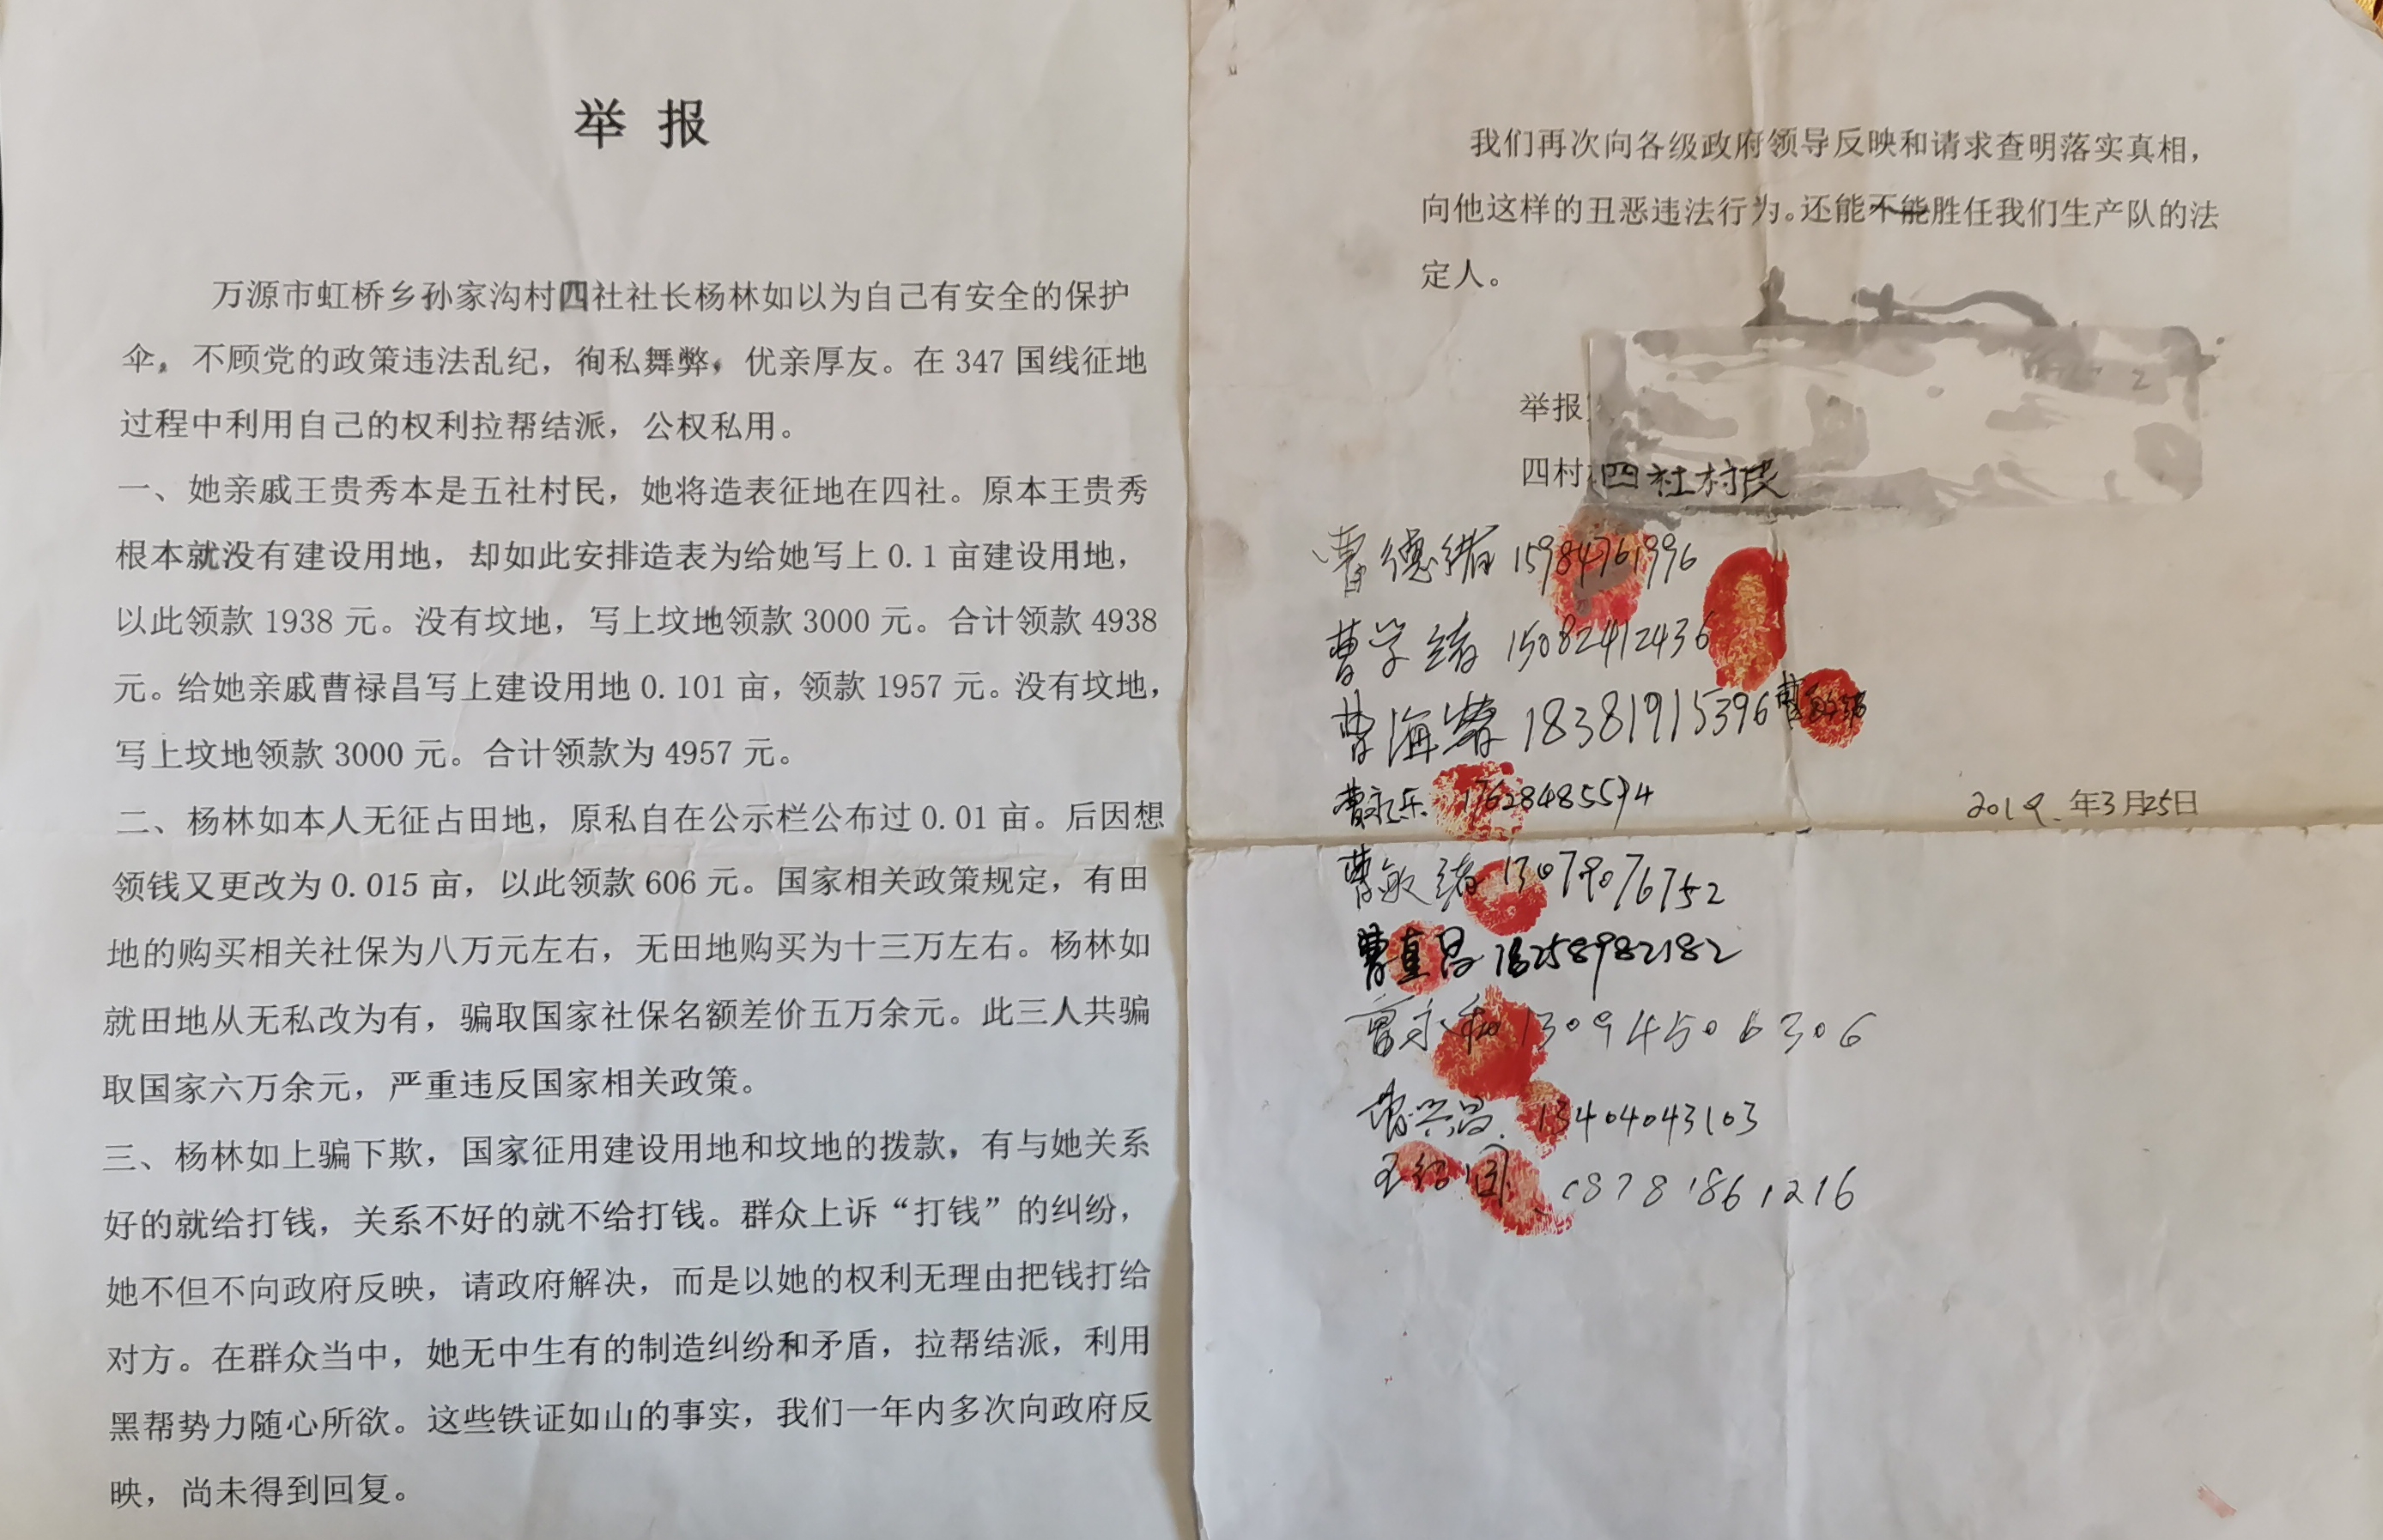 举 报
万源市虹桥乡孙家沟村四社社长杨林如以为自己有安全的保护
伞，不顾党的政策违法乱纪，徇私舞弊，优亲厚友。在 347 国线征地
过程中利用自己的权利拉帮结派，公权私用。
一、她亲戚王贵秀本是五社村民，她将造表征地在四社。原本王贵秀
根本就没有建设用地，却如此安排造表为给她写上 0.1 亩建设用地，
以此领款 1938 元。没有坟地，写上坟地领款 3000 元。合计领款 4938
元。给她亲戚曹禄昌写上建设用地 0.101 亩，领款 1957 元。没有坟地，
写上坟地领款 3000 元。合计领款为 4957 元。
二、杨林如本人无征占田地，原私自在公示栏公布过 0.01 亩。后因想
领钱又更改为 0.015 亩，以此领款 606 元。国家相关政策规定，有田
地的购买相关社保为八万元左右，无田地购买为十三万左右。杨林如
就田地从无私改为有，骗取国家社保名额差价五万余元。此三人共骗
取国家六万余元，严重违反国家相关政策。
三、杨林如上骗下欺，国家征用建设用地和坟地的拨款，有与她关系
好的就给打钱，关系不好的就不给打钱。群众上诉“打钱”的纠纷，
她不但不向政府反映，请政府解决，而是以她的权利无理由把钱打给
对方。在群众当中，她无中生有的制造纠纷和矛盾，拉帮结派，利用
黑帮势力随心所欲。这些铁证如山的事实，我们一年内多次向政府反
映，尚未得到回复。
我们再次向各级政府领导反映和请求查明落实真相，
向他这样的丑恶违法行为。还能不能胜任我们生产队的法
定人。
举报
四村 四社村民
曹德绪 15984761996
曹学绪 15082412436
曹海 18381915396
曹永乐 17628485594
2019 年3月25日
曹敏绪 13079076752
曹直昌 18258982182
曹永和 13094506306
曹兴昌 13404043103
王 国 18781861216